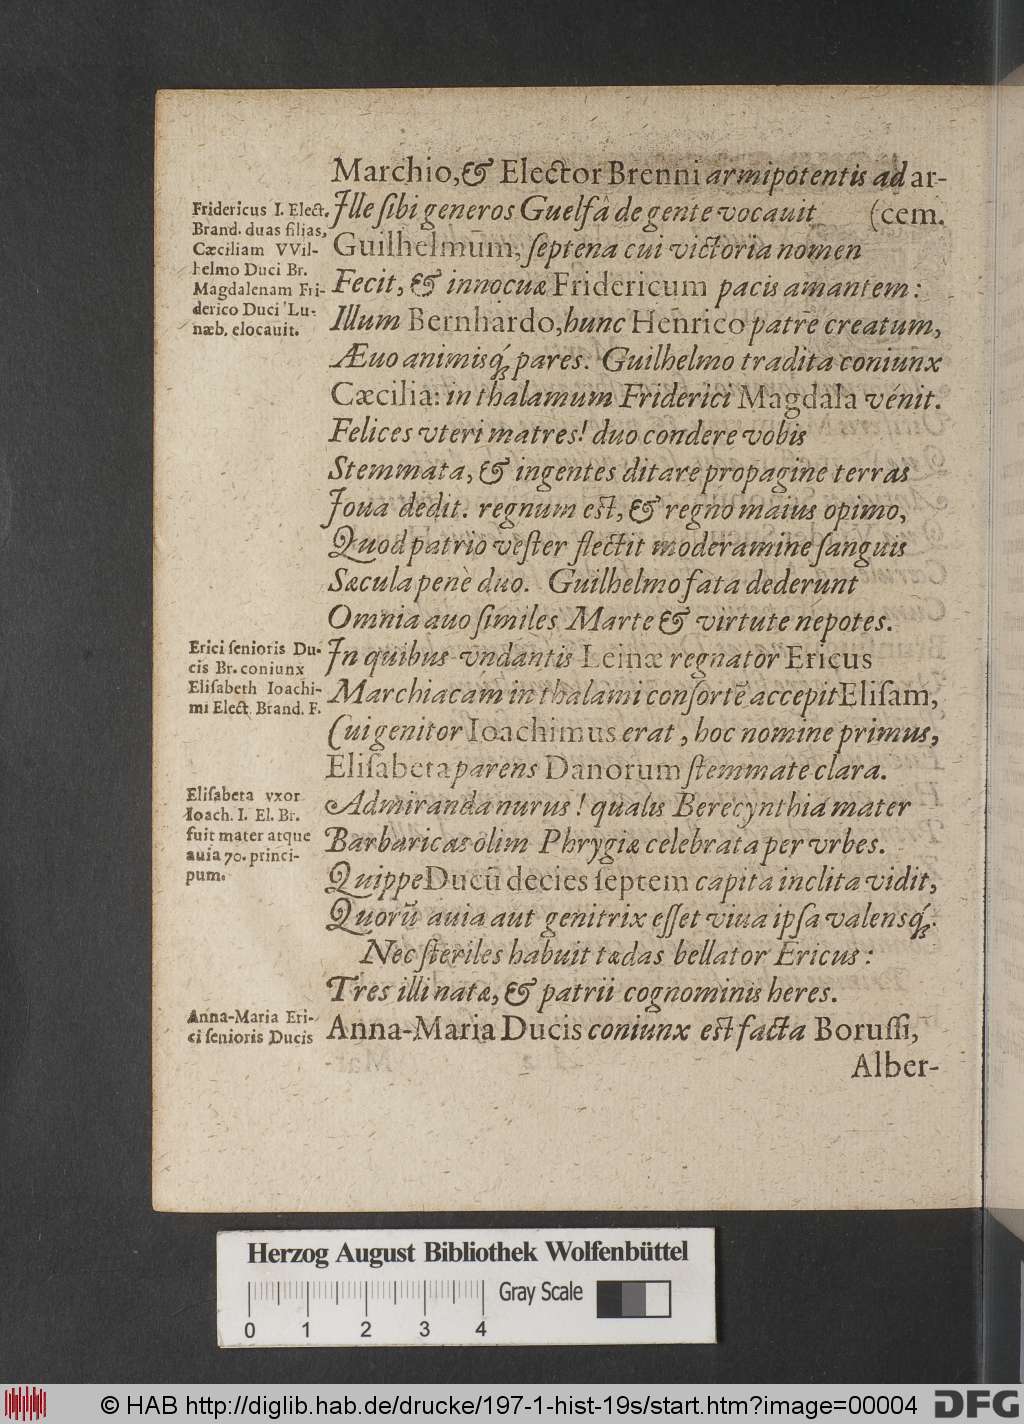 Marchio, & Elector Brenni armipotentis ad ar-
Ille ſibi generos Guelfâ de gente vocauit (cem.
Guilhelmum, ſeptena cui victoria nomen
Fecit, & innocuæ Fridericum pacis amantem:
Illum Bernhardo, hunc Henrico patre creatum,
Æuo animisq́; pares. Guilhelmo tradita coniunx
Cæcilia: in thalamum Friderici Magdala vénit.
Felices vteri matres! duo condere vobis
Stemmata, & ingentes ditare propagine terras
Joua dedit. regnum eſt, & regno maius opimo,
Quod patrio veſter flectit moderamine ſanguis
Sæcula penè duo. Guilhelmo fata dederunt
Omnia auo ſimiles Marte & virtute nepotes.
In quibus vndantis Leinæ regnator Ericus
Marchiacam in thalami conſortẽ accepit Eliſam,
Cui genitor Ioachimus erat, hoc nomine primus,
Eliſabeta parens Danorum ſtemmate clara.
Admiranda nurus! qualis Berecynthia mater
Barbaricas olim Phrygiæ celebrata per vrbes.
Quippe Ducũ decies ſeptem capita inclita vidit,
Quorũ auia aut genitrix eſſet viua ipſa valensq́;.
Nec ſteriles habuit tædas bellator Ericus:
Tres illi natæ, & patrii cognominis heres.
Anna-Maria Ducis coniunx eſt facta Boruſſi,
Alber-
Fridericus I. Elect.
Brand. duas filias,
Cæciliam VVil-
helmo Duci Br.
Magdalenam Fri-
derico Duci Lu-
næb. elocauit.
Erici ſenioris Du-
cis Br. coniunx
Eliſabeth Ioachi-
mi Elect. Brand. F.
Eliſabeta vxor
Ioach. I. El. Br.
fuit mater atque
auia 70. princi-
pum.
Anna-Maria Eri-
ci ſenioris Ducis
Herzog August Bibliothek Wolfenbüttel
Gray Scale
0 1 2 3 4
© HAB http://diglib.hab.de/drucke/197-1-hist-19s/start.htm?image=00004
DFG